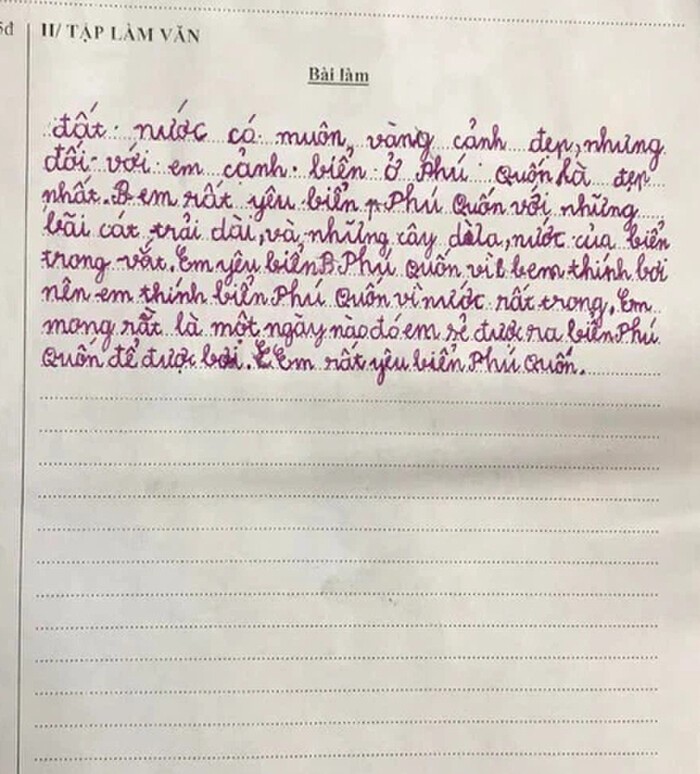 5đ
II/ TẬP LÀM VĂN
Bài làm
đất nước có muôn, vàng cảnh đẹp, nhưng
đối với em cảnh biển ở Phú Quốn là đẹp
nhất. B em rất yêu biển p Phú Quốn với những
bãi cát trải dài, và, những cây dừa, nước của biển
trong vắt. Em yêu biển B Phú Quốn vì b em thính bơi
nên em thính biển Phú Quốn vì nước rất trong. Em
mong rằt là một ngày nào đó em sẻ được ra biển Phú
Quốn để được bơi. E Em rất yêu biển Phú Quốn.